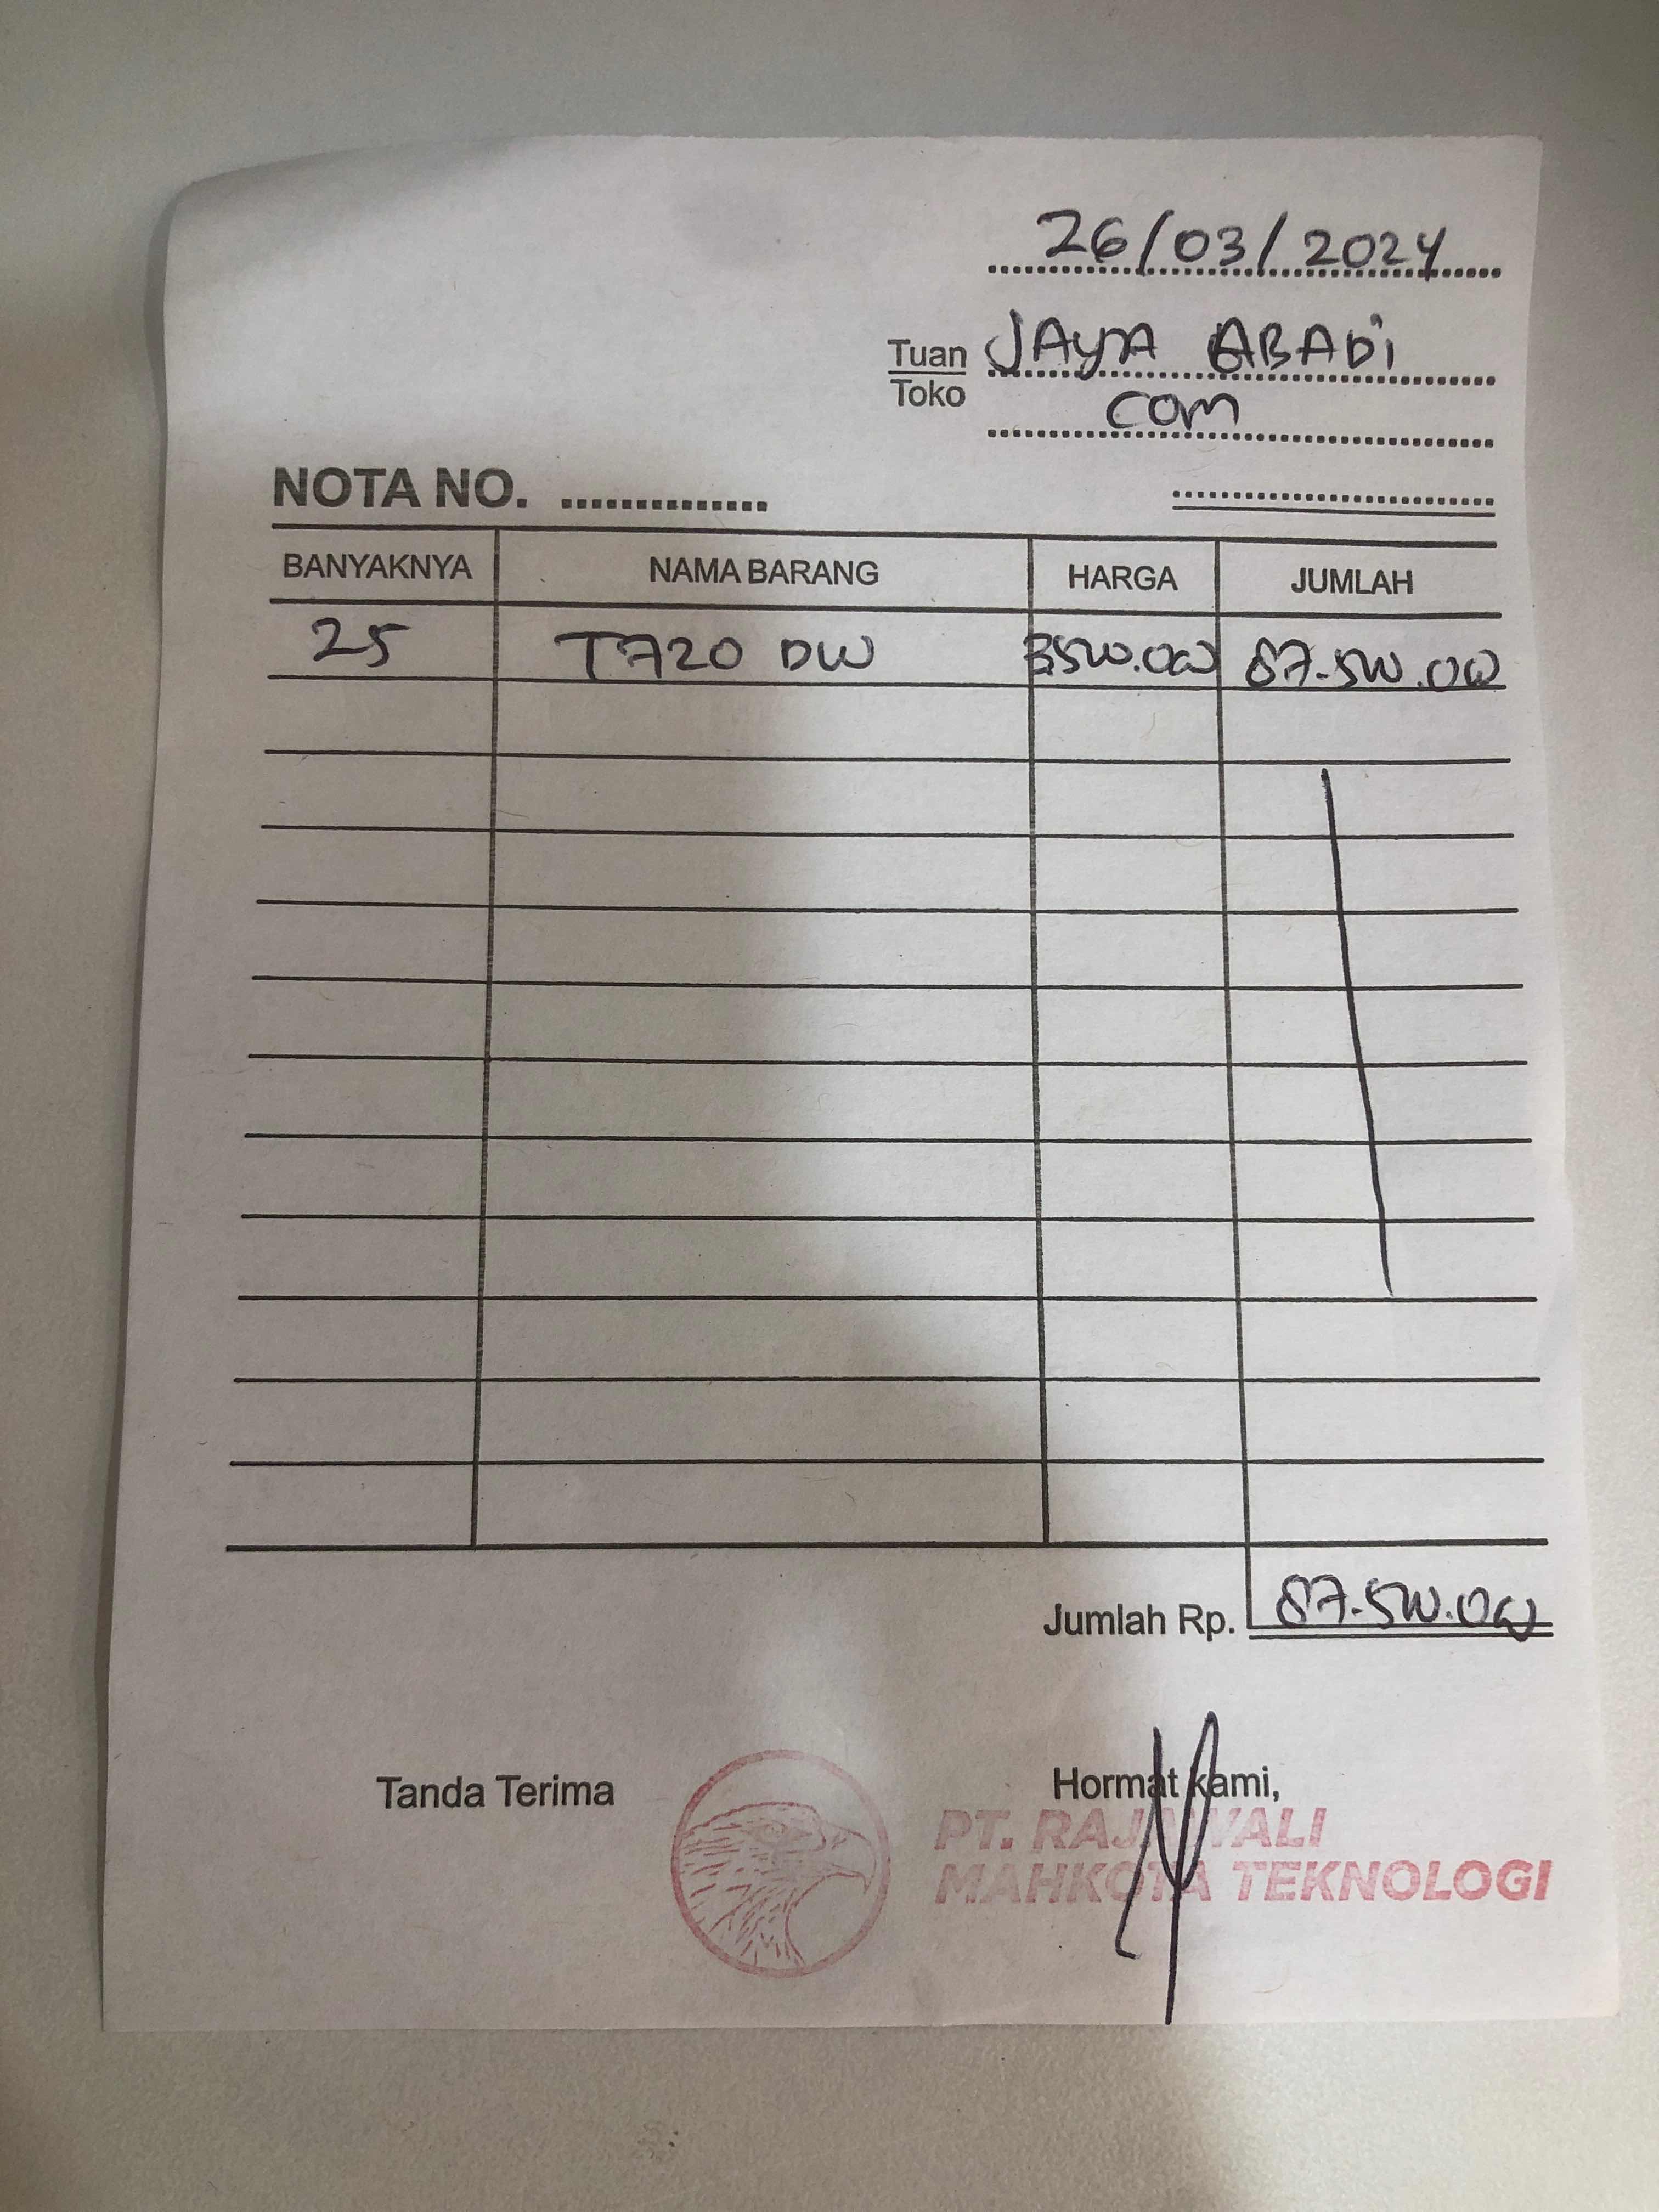 26/03/2024
Tuan JAYA ABADI
Toko COM
NOTA NO. ..............
BANYAKNYA NAMA BARANG HARGA JUMLAH
25 T720 DW 3500.000 87.500.000
Jumlah Rp. 87.500.000
Tanda Terima Hormat kami,
PT. RAJAWALI
MAHKOTA TEKNOLOGI